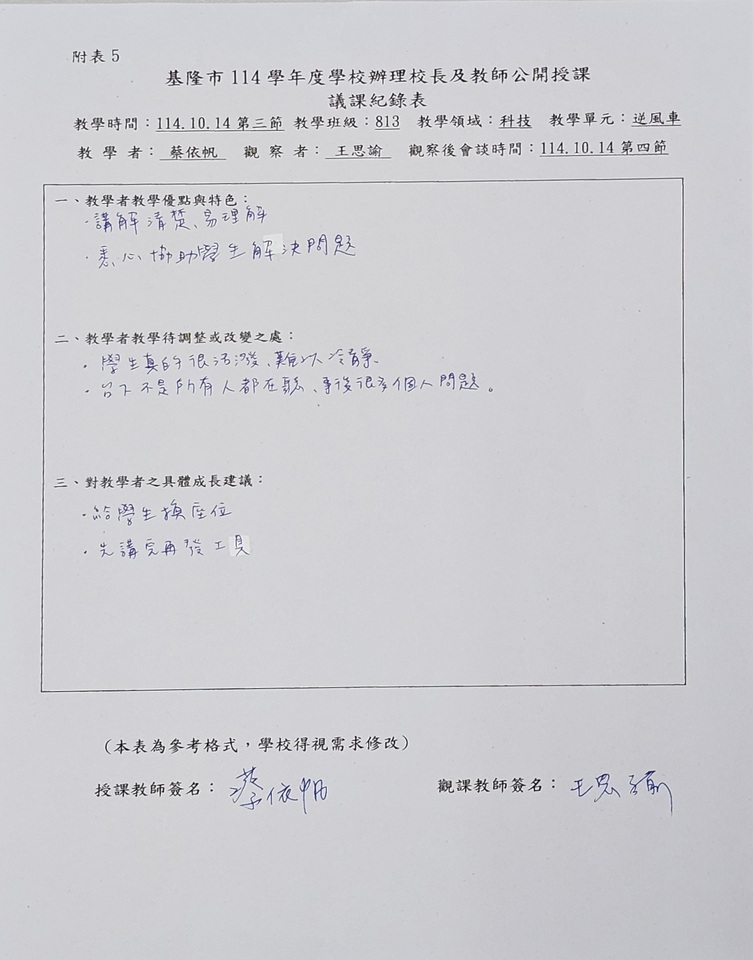 附表 5
基隆市 114 學年度學校辦理校長及教師公開授課
議課紀錄表
教學時間：114.10.14 第三節 教學班級：813 教學領域：科技 教學單元：逆風車
教 學 者： 蔡依帆 觀 察 者： 王思諭 觀察後會談時間：114.10.14 第四節
一、教學者教學優點與特色：
· 講解清楚、易理解
· 悉心協助學生解決問題
二、教學者教學待調整或改變之處：
· 學生真的很活潑、難以冷靜
· 台下不是所有人都在聽、事後很多個人問題。
三、對教學者之具體成長建議：
· 給學生換座位
· 先講完再發工具
（本表為參考格式，學校得視需求修改）
授課教師簽名： 蔡依帆 觀課教師簽名： 王思諭